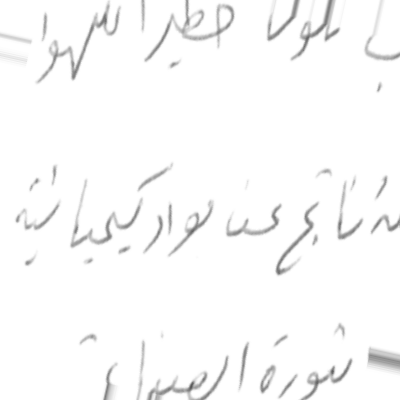 تلوثا خطيرا للهوا
ناتج عن مواد كيميائية
ثورة الصناعة